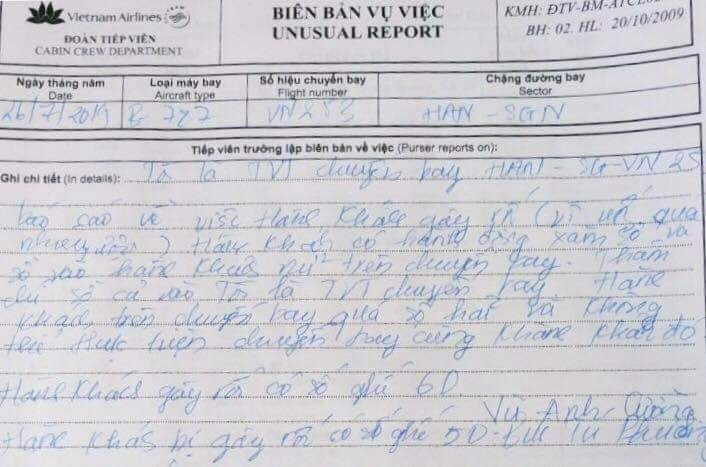 Vietnam Airlines
ĐOÀN TIẾP VIÊN
CABIN CREW DEPARTMENT
BIÊN BẢN VỤ VIỆC
UNUSUAL REPORT
KMH: ĐTV-BM-ATCL
BH: 02. HL: 20/10/2009
Ngày tháng năm
Date
Loại máy bay
Aircraft type
Số hiệu chuyến bay
Flight number
Chặng đường bay
Sector
26/7/2019 B 787 VN253 HAN - SGN
Tiếp viên trưởng lập biên bản về việc (Purser reports on):
Ghi chi tiết (In details): Tôi là TVT chuyến bay HAN - SG - VN 25
báo cáo về việc Hành khách gây rối (vì uống quá
nhiều rượu) Hành khách có hành động xàm sỡ và
sờ vào hành khách nữ trên chuyến bay. Thậm
chí sờ cả vào Tôi là TVT chuyến bay. Hành
khách trên chuyến bay quá sợ hãi và không
thể thực hiện chuyến bay cùng hành khách đó
Hành khách gây rối có số ghế 6D
Vũ Anh Cường
Hành khách bị gây rối có số ghế 5D